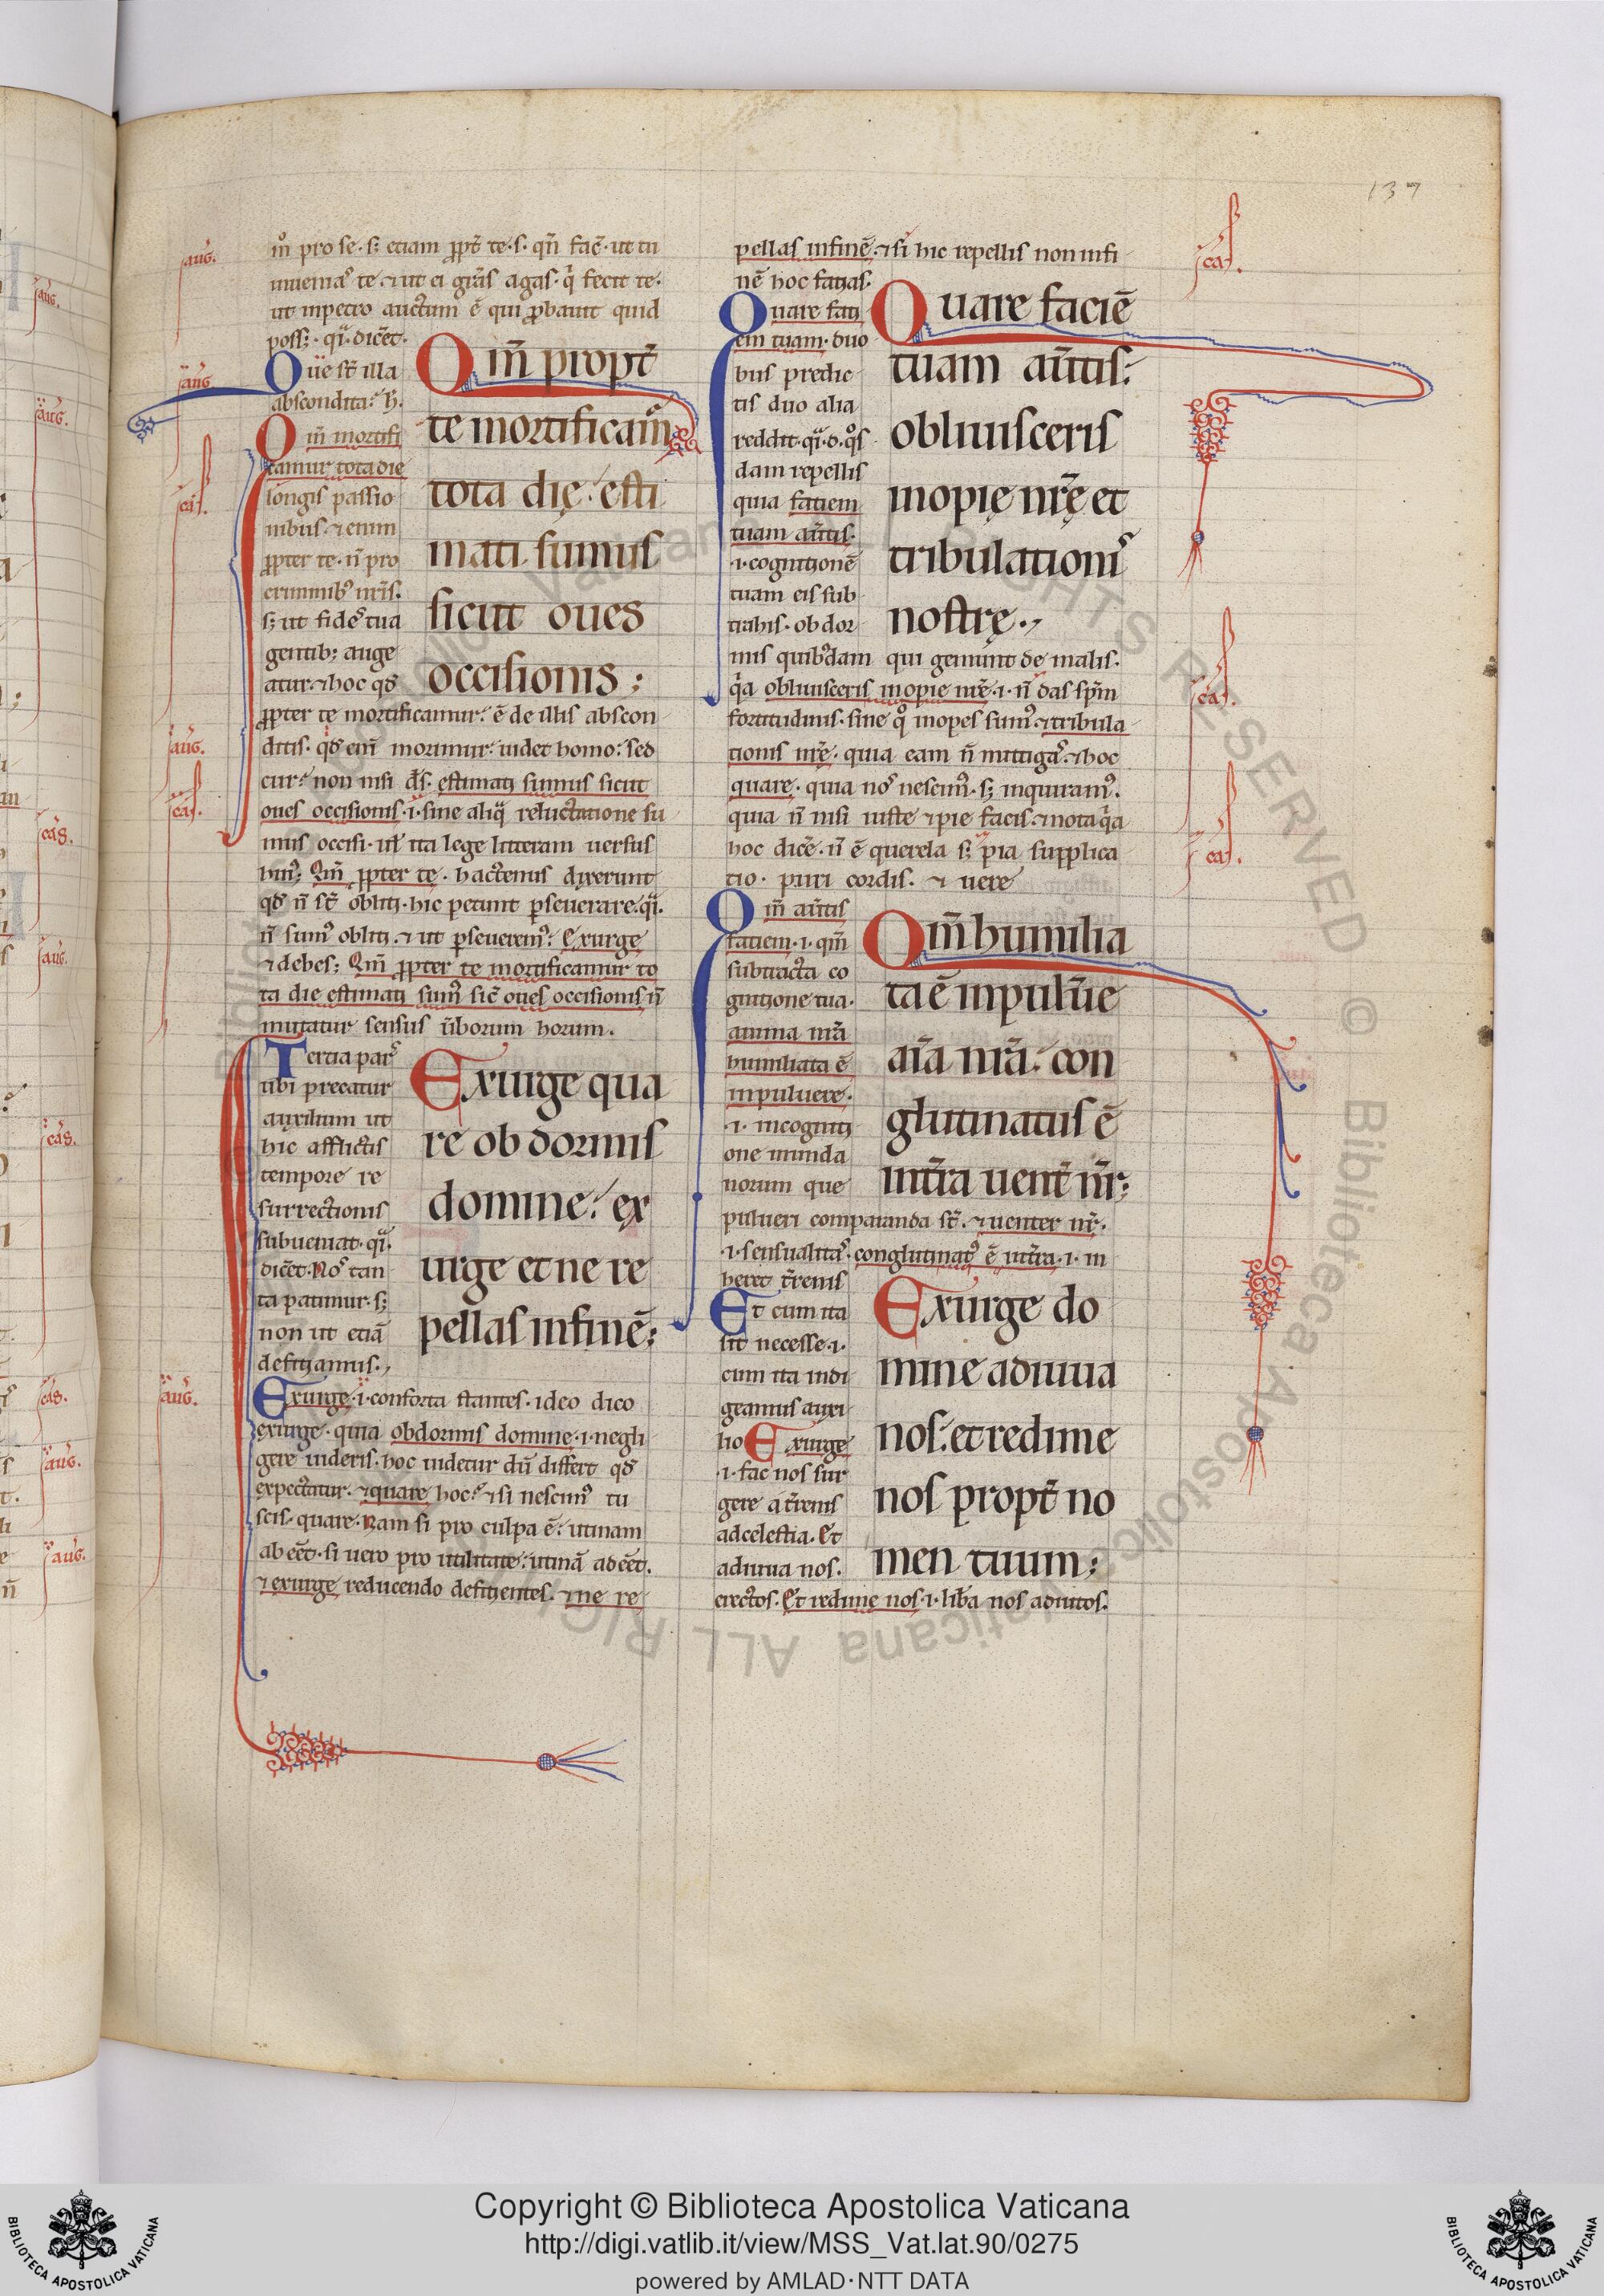 137
m̊ pro se · s; etiam ꝓpt̄ te · s · qn̄ facē · ut tu
inuenias te · ⁊ ut ei grās agas · q̇ fecit te ·
ut inpetro auctum ē qui ꝓbauit quid
poss; · qͣi · dicēt ·
Que st̄ illa
abscondita? h̄.
Qm̄ mortifi
camur tota die
longis passio
nibus · ⁊ enim
ꝓpter te · n̄ pro
criminibꝰ nr̄is ·
s; ut fides tua
gentib; auge
atur · ⁊ hoc qđ
Qm̄ propt̄
te mortificam̄
tota dię · esti
mati sumus
sicut oues
occisionis ;
ꝓpter te mortificamur · ē de illis abscon
ditis · qđ eni͞ morimur · uidet homo : sed
cur? non nisi d̄s. estimati sumus sicut
oues occisionis · i · sine aliqͣ reluctatione su
mus occisi · ul̄ ita lege litteram uersus
huiꝰ ; Qm̄ ꝓpter te · hactenus dixerunt
qđ n̄ st̄ obliti · hic petunt ꝑseuerare · qͣi ·
n̄ sumꝰ obliti · ⁊ ut ꝑseueremꝰ? Exurge
⁊ debes ; Qm̄ ꝓpter te mortificamur to
ta die estimati sumꝰ sic̄ oues occisionis n̄
mutatur sensus ūborum horum .
Tertia pars
ubi precatur
auxilium ut
hic afflictis
tempore re
surrectionis
subueniat · qͣi ·
dicēt · Nos tan
ta patimur · s;
non ut etiā
deficiamus .,
Exurge qua
re obdormis
domine? ex
urge et ne re
pellas in finē ;
Exurge · i · conforta stantes · ideo dico
exurge · quia obdormis domine · i · negli
gere uideris · hoc uidetur dū differt qđ
expectatur · ⁊ quare hoc? ⁊ si nescimꝰ tu
scis · quare · Nam si pro culpa ē? utinam
abeēt · si uero pro utilitate? utinā adeēt .
⁊ exurge reducendo deficientes · ⁊ ne re
pellas in finē · ⁊ si hic repellis non in fi
nē hoc facias ·
Quare faci
em tuam · duo
bus predic
tis duo alia
reddit · qͣi · d · qͦs
dam repellis
quia faciem
tuam au̅tis ·
· i · cognitionē
tuam eis sub
trahis · obdor
Quare faciē
tuam au̅tis :
obliuisceris
inopię nr̄ę et
tribulationis
nostrę .,
mis quibꝰdam qui gemunt de malis ·
q̇a obliuisceris inopie nr̄e · i · n̄ das sp̄m
fortitudinis · sine qͦ inopes sumꝰ · ⁊ tribula
tionis nr̄e · quia eam n̄ mitigas · ⁊ hoc
quare · quia nos nescimꝰ · s; inquiramꝰ .
quia n̄ nisi iuste ⁊ pie facis · ⁊ nota q̇a
hoc dicē · n̄ ē querela s; pia supplica
tio · puri cordis · ⁊ uere
Qm̄ au̅tis
faciem · i · qm̄
subtracta co
gnitione tua ·
anima nr̄a
humiliata ē
in puluere ·
· i · in cogniti
one munda
norum que
Qm̄ humilia
ta ē in pulu̅e
aīa nr̄a · con
glutinatus ē
in t̄ra uent̄ nr̄ ;
pulueri comparanda st̄ · ⁊ uenter nr̄ ·
· i · sensualitas · conglutinatꝰ ē in t̄ra · i · in
heret t̄renis
Et cum ita
sit necesse · i ·
cum ita indi
geamus auxi
lio Exurge
· i · fac nos sur
gere a t̄renis
ad celestia · Et
adiuua nos .
Exurge do
mine adiuua
nos : et redime
nos propt̄ no
men tuum ;
erectos · Et redime nos · i · lib̄a nos adiutos .
aug.
aug.
cas.
aug.
cas.
aug.
cas.
cas.
cas.
Copyright © Biblioteca Apostolica Vaticana
http://digi.vatlib.it/view/MSS_Vat.lat.90/0275
powered by AMLAD·NTT DATA
BIBLIOTECA APOSTOLICA VATICANA
BIBLIOTECA APOSTOLICA VATICANA